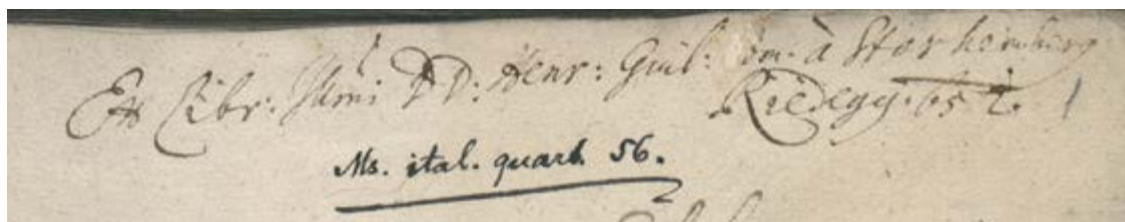 Ex Libr: Illmi DD: Henr: Guil: Com: à Storhemberg
Riedegg. 652. 1
Ms. ital. quart. 56.